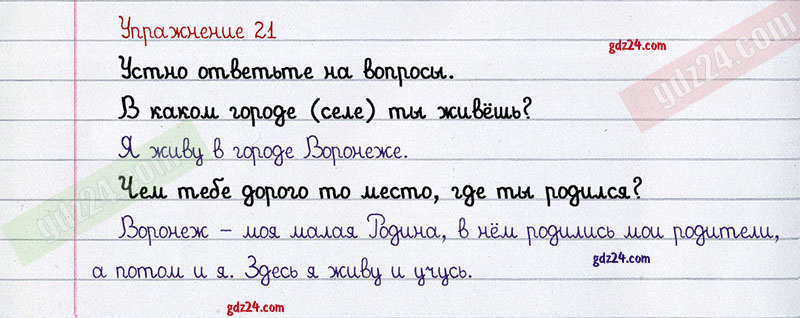 Упражнение 21
gdz24.com
Устно ответьте на вопросы.
gdz24.com
В каком городе (селе) ты живёшь?
Я живу в городе Воронеже.
gdz24.com
Чем тебе дорого то место, где ты родился?
gdz24.com
Воронеж – моя малая Родина, в нём родились мои родители,
а потом и я. Здесь я живу и учусь.
gdz24.com
gdz24.com